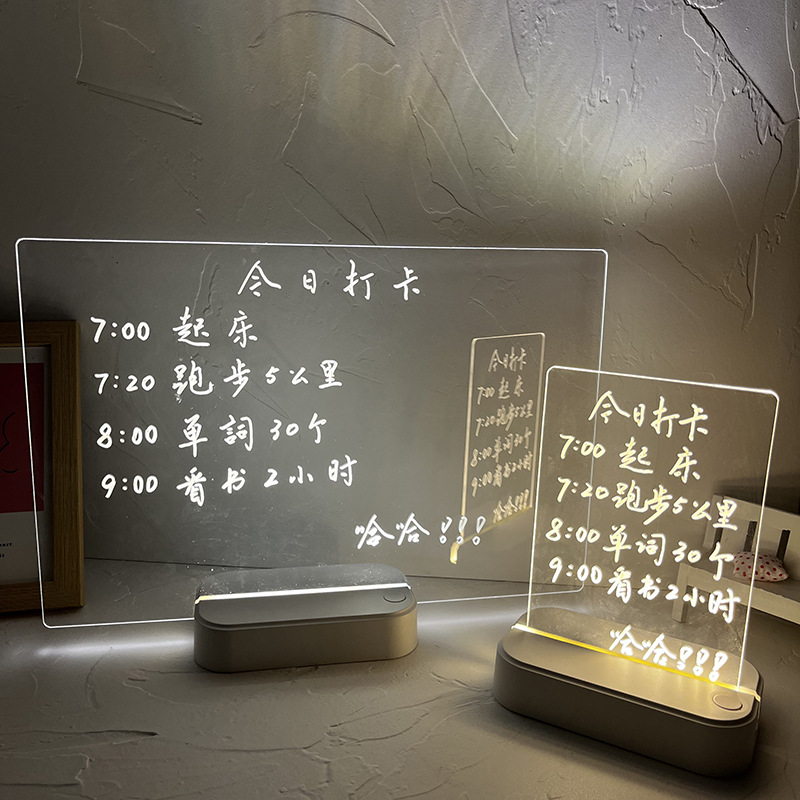 今日打卡
7:00 起床
7:20 跑步5公里
8:00 单詞30个
9:00 看书2小时
哈哈!!!
今日打卡
7:00 起床
7:20跑步5公里
8:00单词30个
9:00看书2小时
哈哈!!!
今日打卡
7:00 起床
7:20跑步5公里
8:00单词30个
9:00看书2小时
哈哈!!!